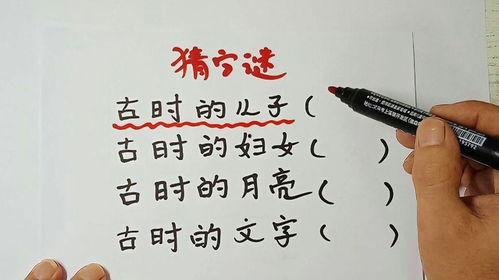 猜字谜
古时的儿子(
古时的妇女( )
古时的月亮( )
古时的文字( )